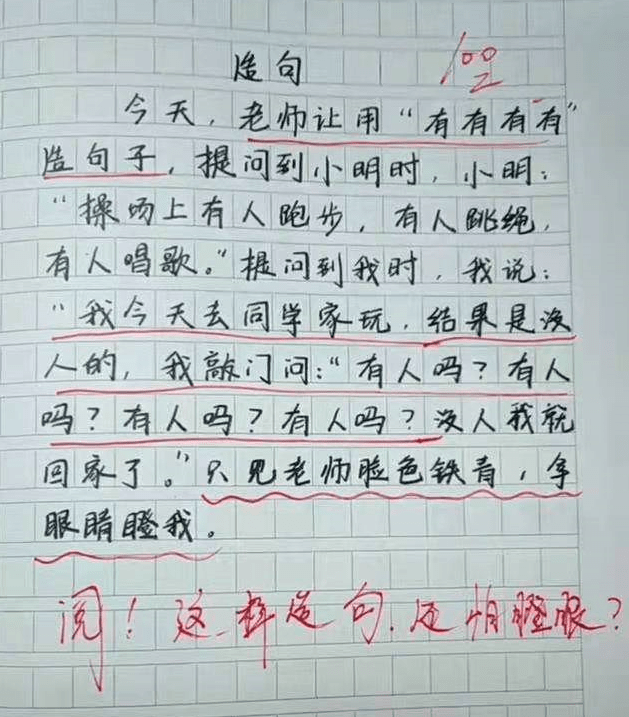 造句
100
今天，老师让用“有有有有”
造句子，提问到小明时，小明：
“操场上有人跑步，有人跳绳，
有人唱歌。”提问到我时，我说：
“我今天去同学家玩，结果是没
人的，我敲门问：“有人吗？有人
吗？有人吗？有人吗？没人我就
回家了。”只见老师脸色铁青，拿
眼睛瞪我。
阅！这样造句.还怕瞪眼？